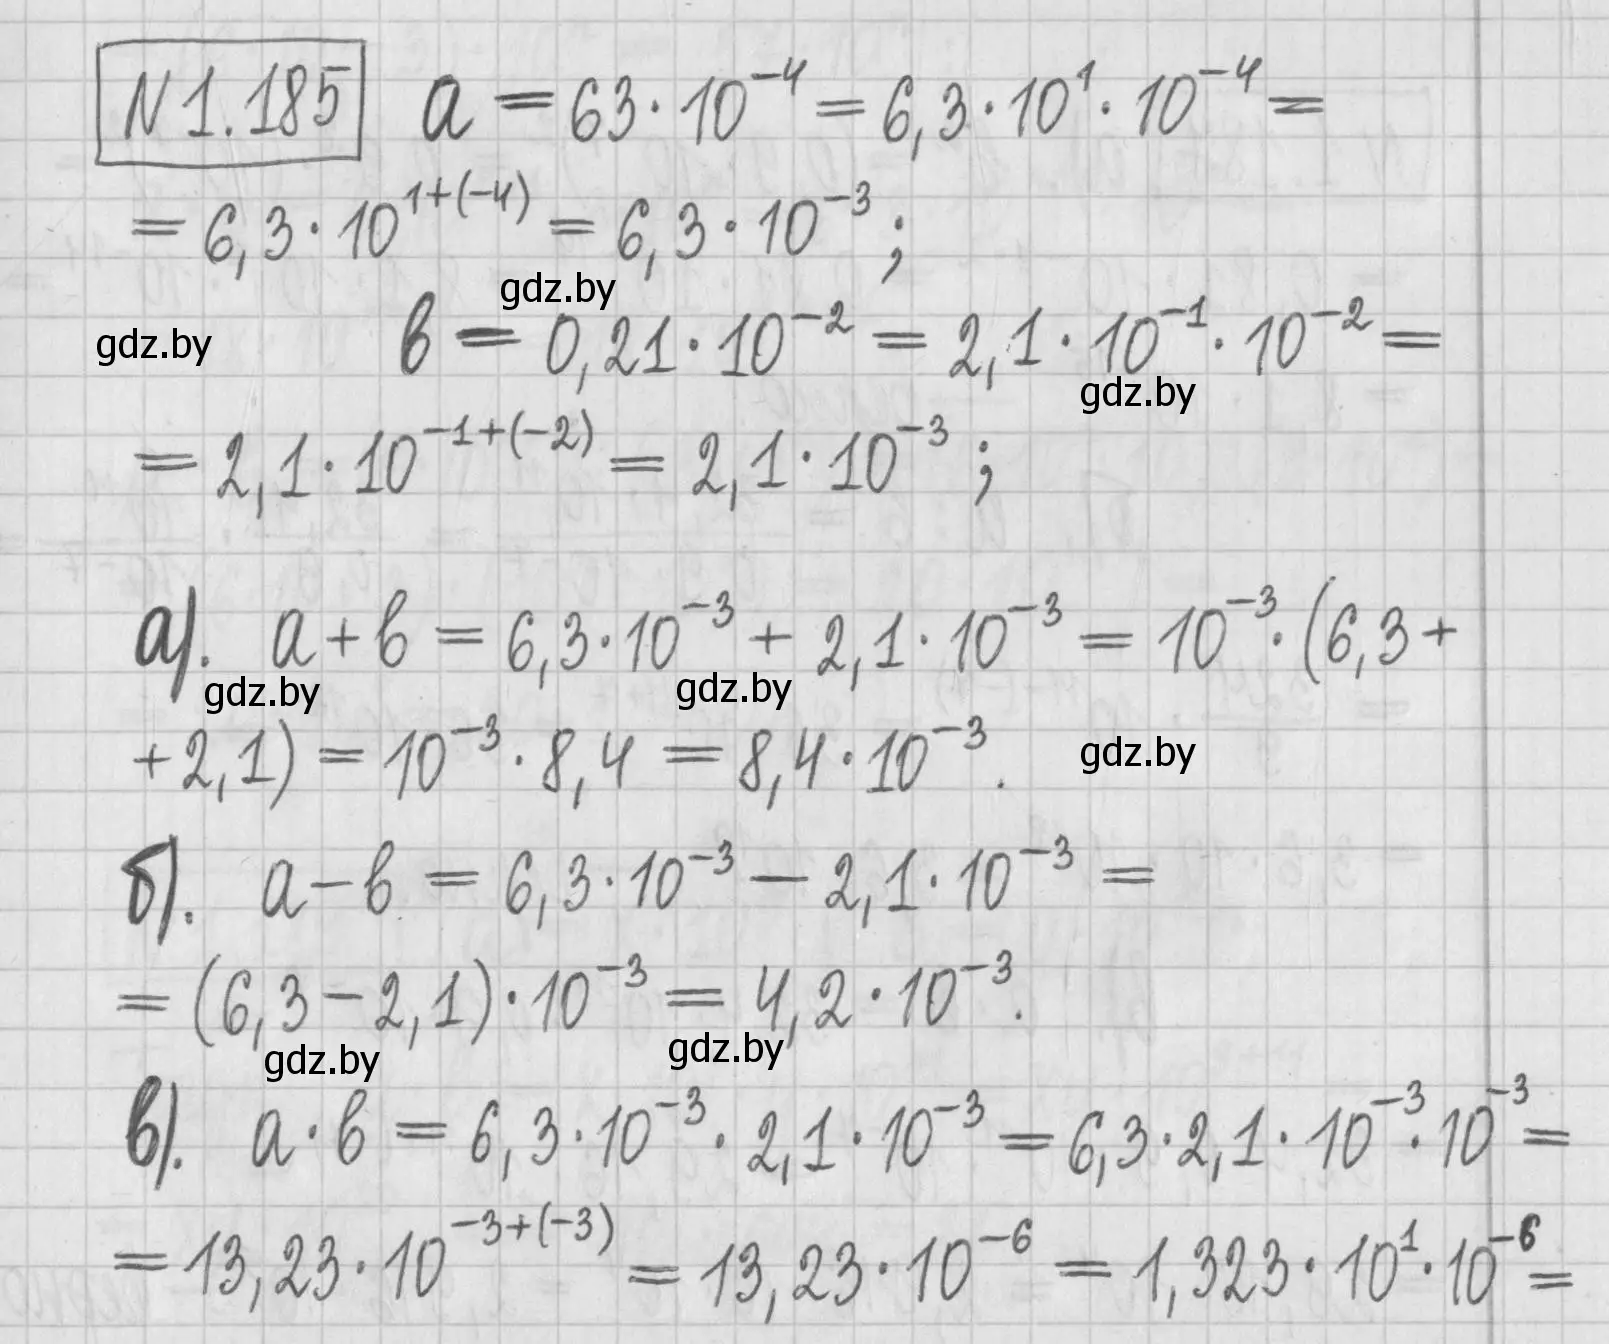 N1.185 a = 63·10⁻⁴ = 6,3·10¹·10⁻⁴ =
= 6,3·10¹⁺⁽⁻⁴⁾ = 6,3·10⁻³ ;
gdz.by
в = 0,21·10⁻² = 2,1·10⁻¹·10⁻² =
gdz.by
gdz.by
= 2,1·10⁻¹⁺⁽⁻²⁾ = 2,1·10⁻³ ;
а). a + в = 6,3·10⁻³ + 2,1·10⁻³ = 10⁻³·(6,3 +
gdz.by gdz.by
+ 2,1) = 10⁻³·8,4 = 8,4·10⁻³.
gdz.by
б). a − в = 6,3·10⁻³ − 2,1·10⁻³ =
= (6,3 − 2,1)·10⁻³ = 4,2·10⁻³.
gdz.by gdz.by
в). a·в = 6,3·10⁻³·2,1·10⁻³ = 6,3·2,1·10⁻³·10⁻³ =
= 13,23·10⁻³⁺⁽⁻³⁾ = 13,23·10⁻⁶ = 1,323·10¹·10⁻⁶ =